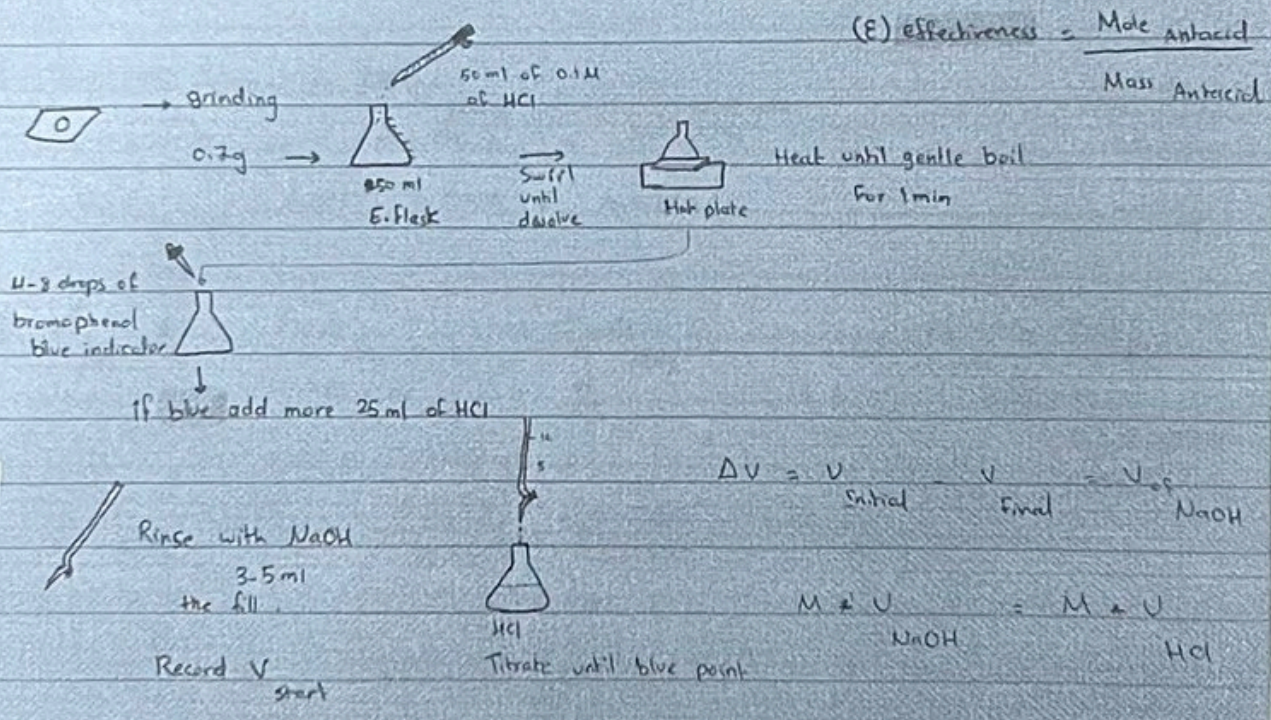 (E) effectiveness = Mole Antacid
Mass Antacid
→ grinding
50 ml of 0.1M
of HCl
0.7g →
250 ml
E. flask
→
Swirl
until
dissolve
Hot plate
Heat until gentle boil
For 1 min
4-8 drops of
bromophenol
blue indicator
if blue add more 25 ml of HCl
10
5
ΔV = V initial - V final = V of NaOH
Rinse with NaOH
3-5 ml
the fill.
Record V start
HCl
Titrate until blue point
M * V NaOH = M * V HCl